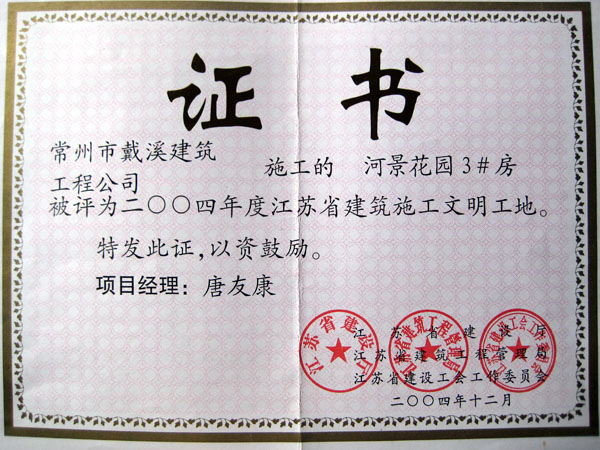 证书
常州市戴溪建筑
工程公司 施工的 河景花园3#房
被评为二〇〇四年度江苏省建筑施工文明工地。
特发此证,以资鼓励。
项目经理:唐友康
江苏省建设厅
江苏省建筑工程管理局
江苏省建设工会工作委员会
二〇〇四年十二月
江苏省建设厅
江苏省建筑工程管理局